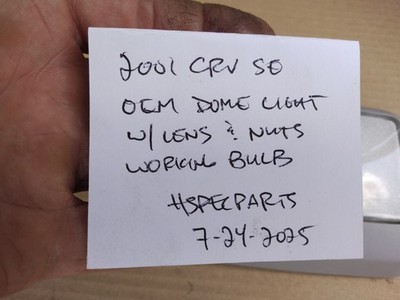 2001 CRV SE
OEM DOME LIGHT
W/LENS & NUTS
WORKING BULB
#SPECPARTS
7-24-2025